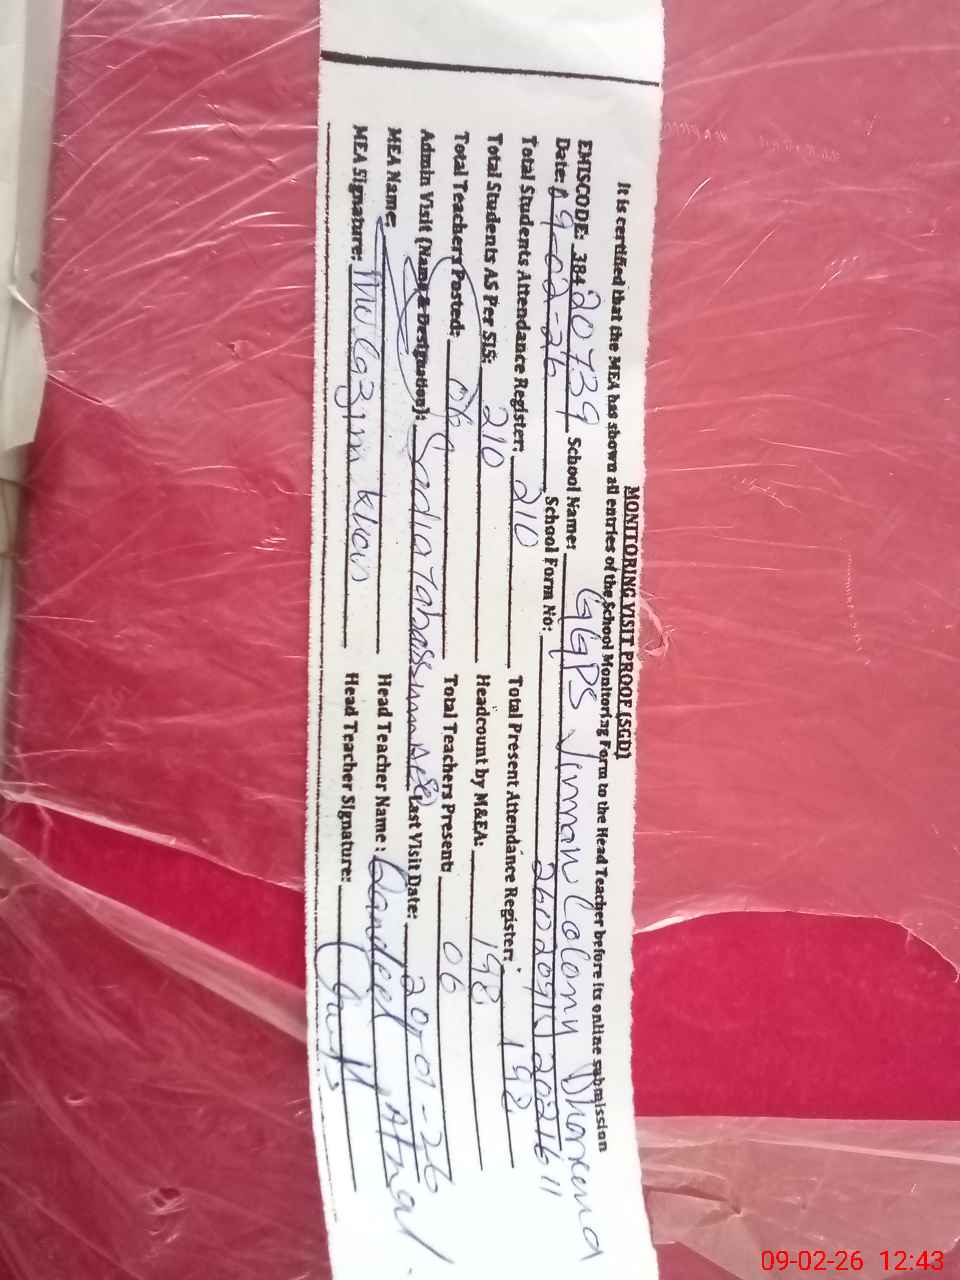 MONITORING VISIT PROOF (SGD)
It is certified that the MEA has shown all entries of the School Monitoring Form to the Head Teacher before its online submission
EMISCODE: 38420739 School Name: GGPS Jinnah Colony
Date: 09-02-26 School Form No:
Total Students Attendance Register: 210 Total Present Attendance Register: 198
Total Students AS Per SIS: 210 Headcount by M&EA: 198
Total Teachers Posted: 06 Total Teachers Present: 06
Admin Visit (Name & Designation): Sadia Tabassum AEO Last Visit Date: 20-01-26
MEA Name: Head Teacher Name: Qandeel
MEA Signature: khan Head Teacher Signature:
09-02-26 12:43